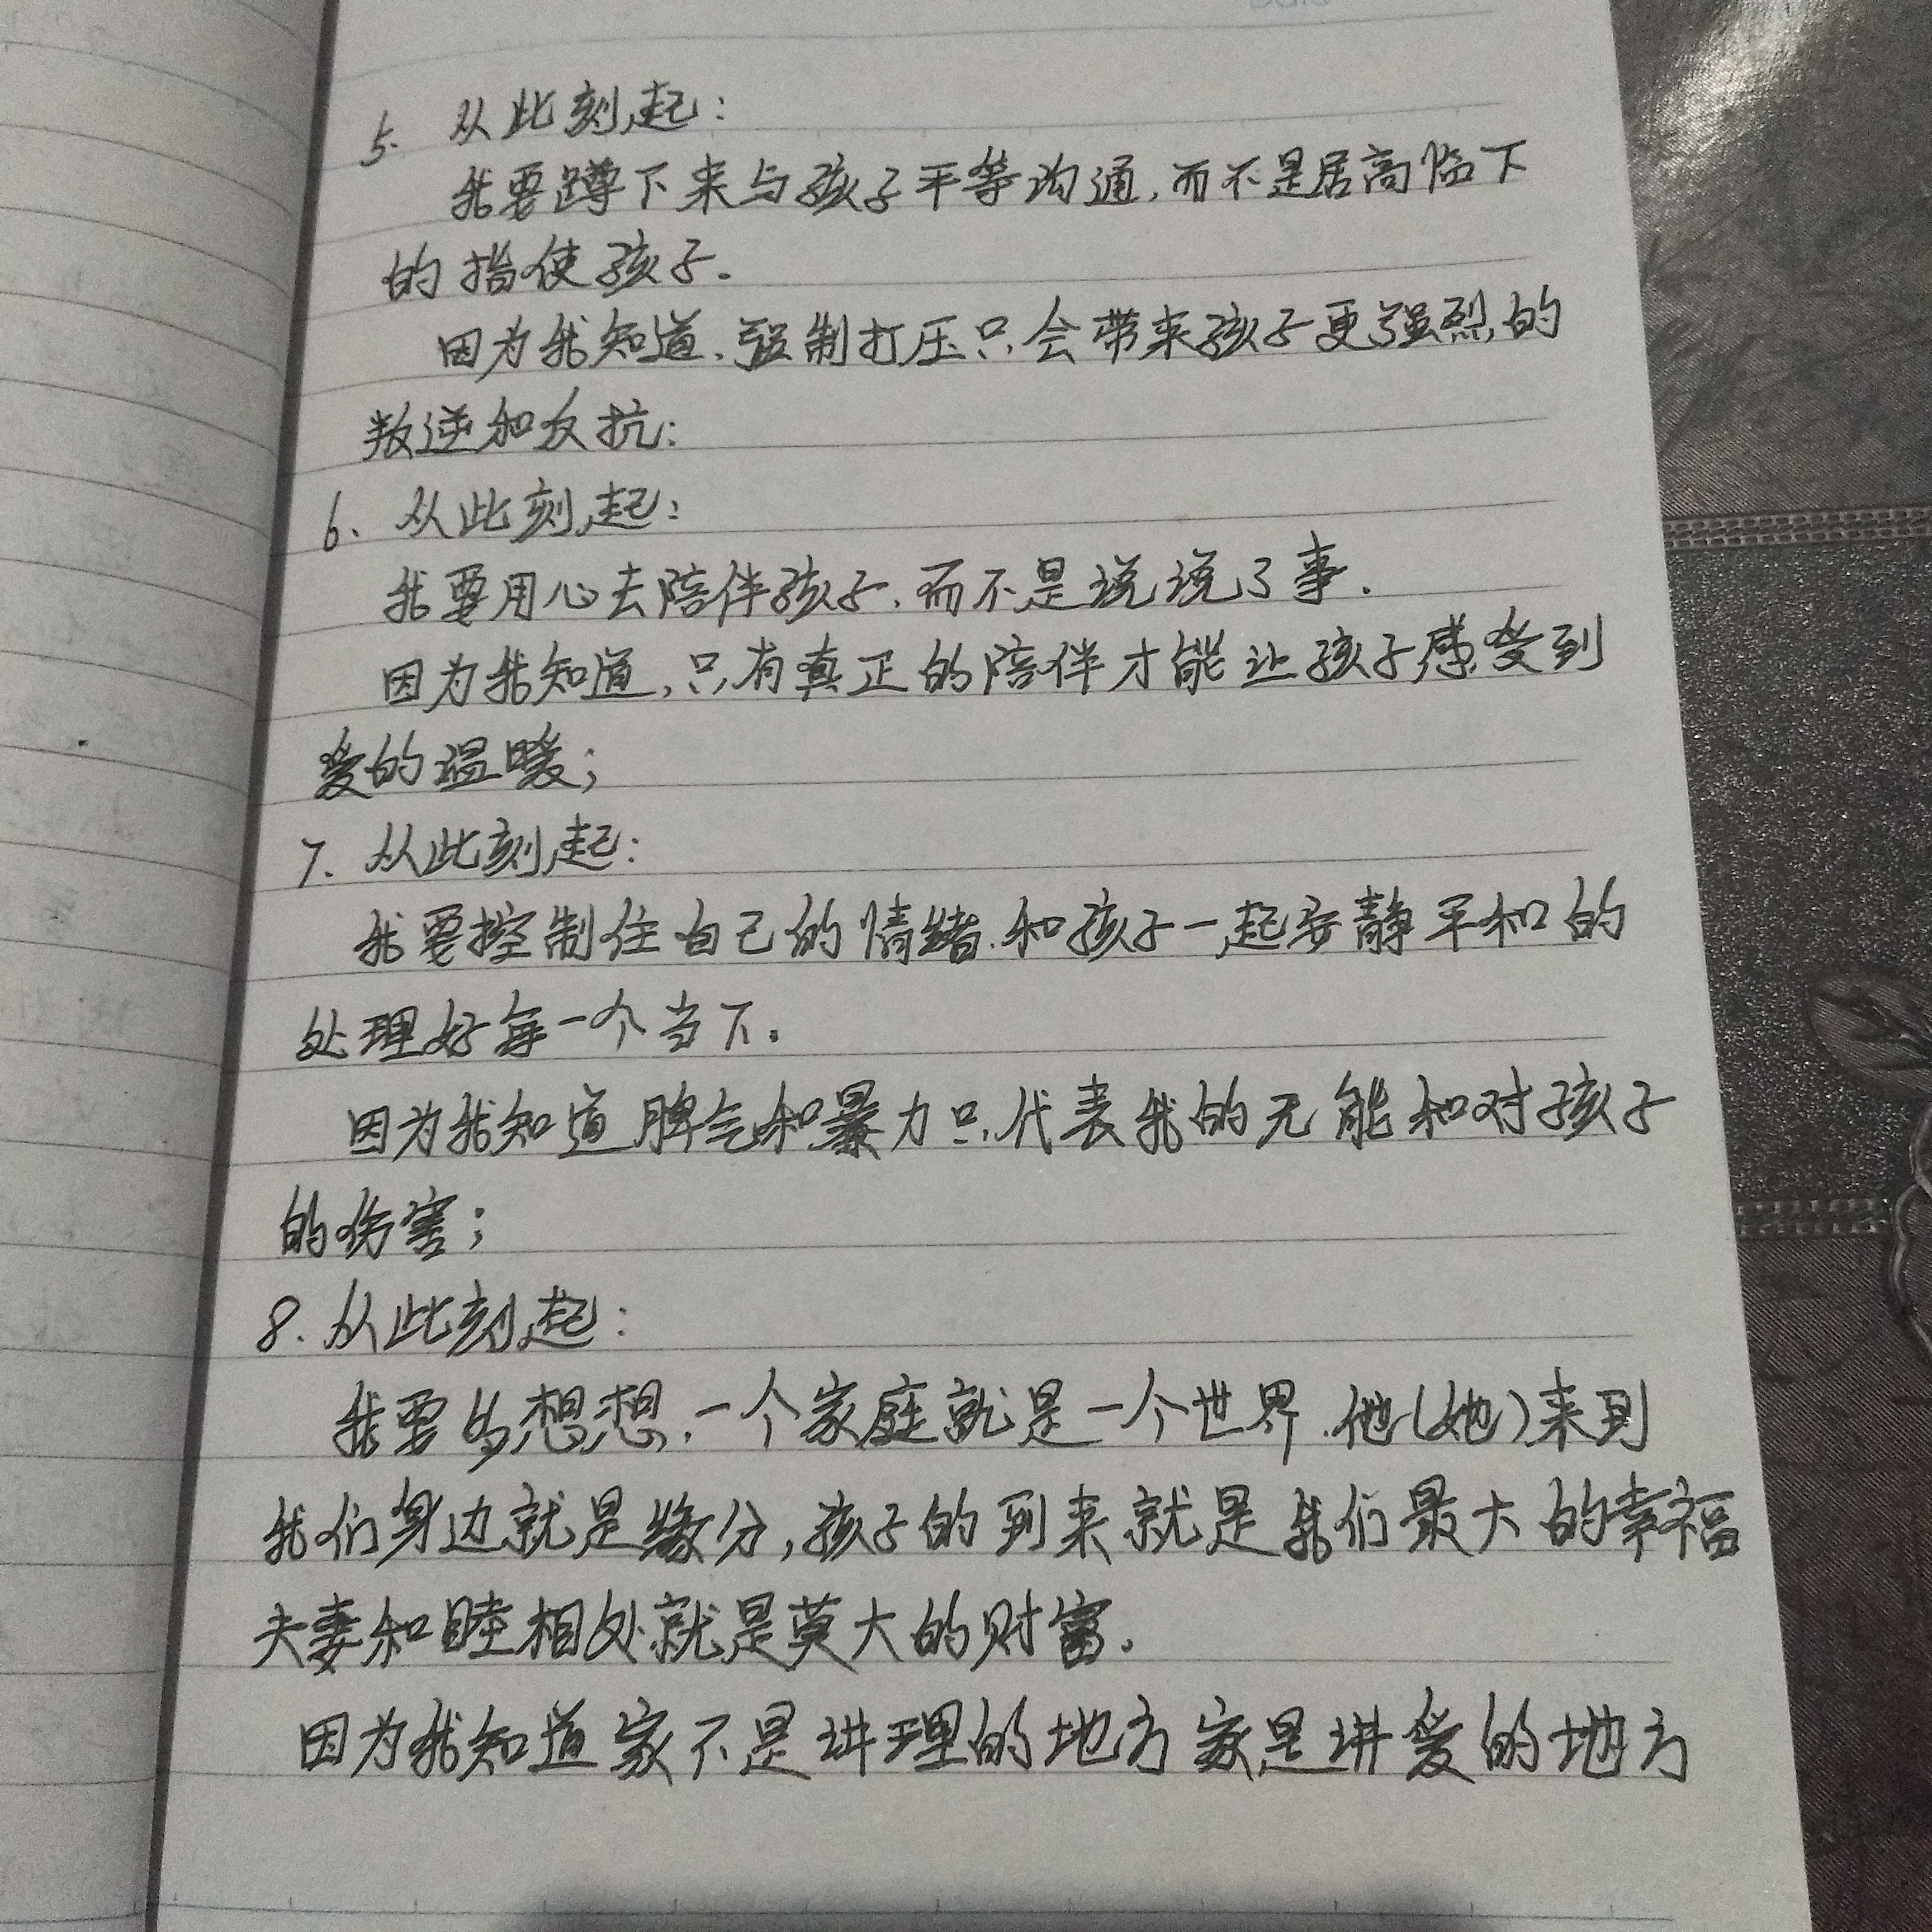 5. 从此刻起：
我要蹲下来与孩子平等沟通，而不是居高临下
的指使孩子.
因为我知道，强制打压只会带来孩子更强烈的
叛逆和反抗：
6、从此刻起：
我要用心去陪伴孩子，而不是说说了事.
因为我知道，只有真正的陪伴才能让孩子感受到
爱的温暖；
7、从此刻起：
我要控制住自己的情绪，和孩子一起安静平和的
处理好每一个当下。
因为我知道脾气和暴力只代表我的无能和对孩子
的伤害；
8. 从此刻起：
我要多想想，一个家庭就是一个世界，他(她)来到
我们身边就是缘分，孩子的到来就是我们最大的幸福
夫妻和睦相处就是莫大的财富.
因为我知道家不是讲理的地方家是讲爱的地方